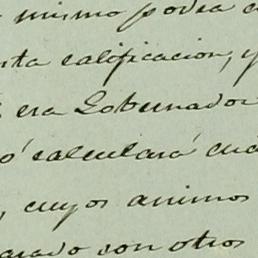 mismo podia
esta calificacion, y
era Gobernador
ó calculará cuá
, cuyos animos
arado con otros